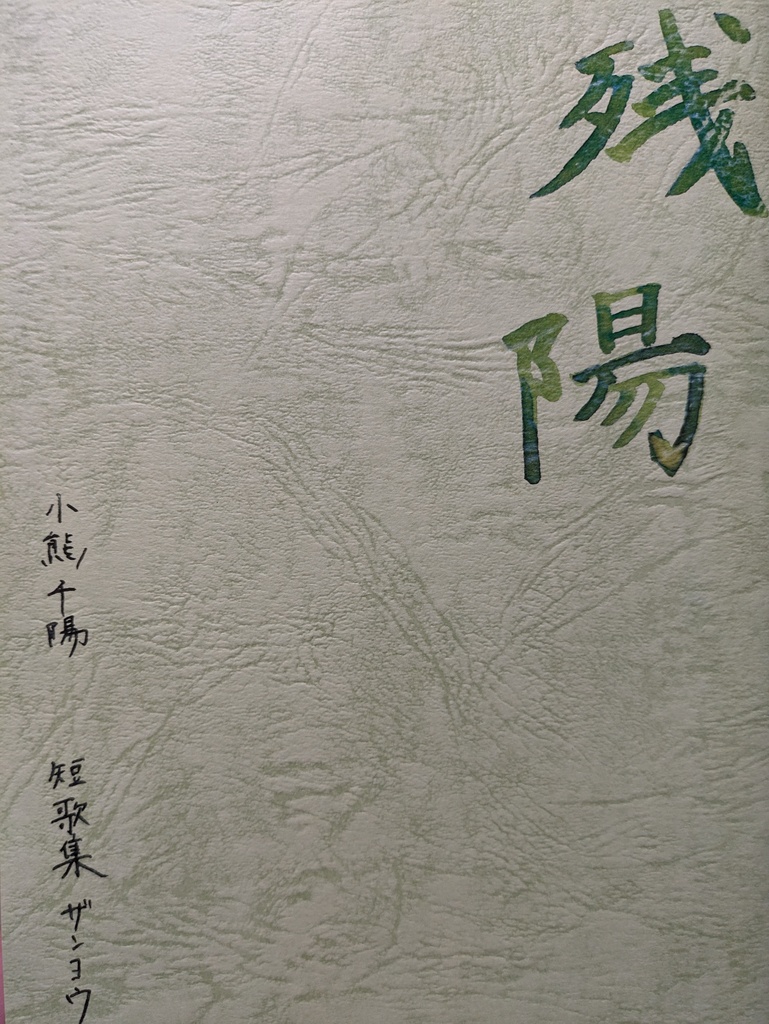 残陽
小熊千陽 短歌集 ザンヨウ